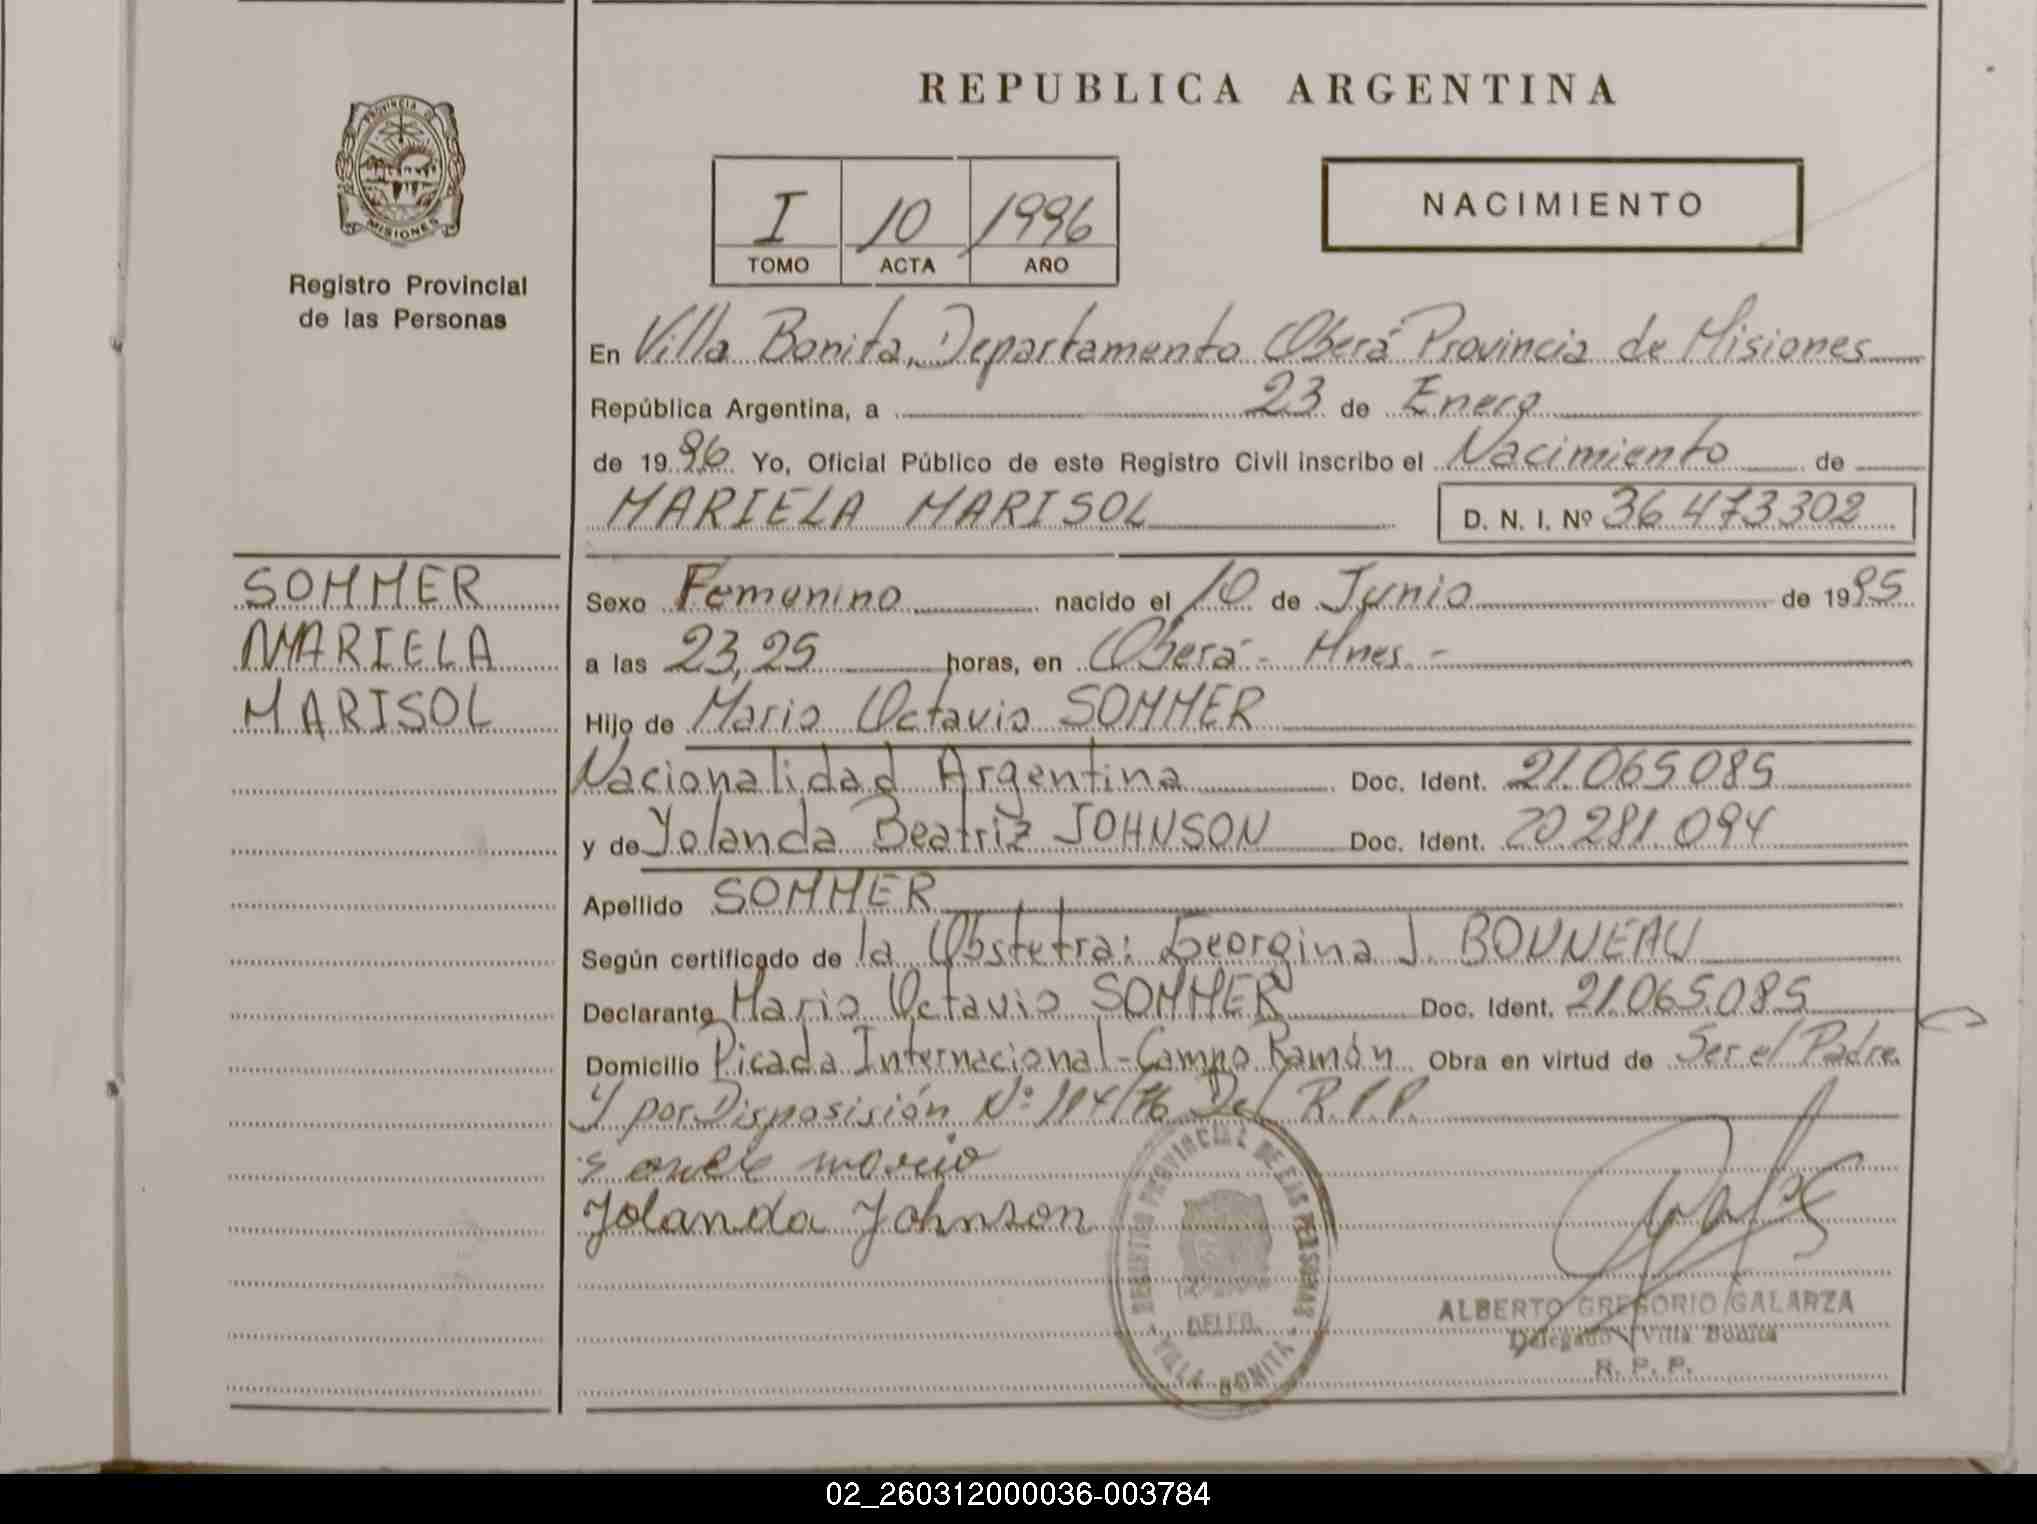 REPUBLICA ARGENTINA
PROVINCIA DE
MISIONES
Registro Provincial
de las Personas
I 10 1996
TOMO ACTA AÑO
NACIMIENTO
En Villa Bonita, Departamento Oberá Provincia de Misiones
República Argentina, a 23 de Enero
de 1996 Yo, Oficial Público de este Registro Civil inscribo el Nacimiento de
MARIELA MARISOL D. N. I. Nº 36 473302
SOMMER
MARIELA
MARISOL
Sexo Femenino nacido el 10 de Junio de 1995
a las 23,25 horas, en Oberá - Mnes. -
Hijo de Mario Octavio SOMMER
Nacionalidad Argentina Doc. Ident. 21.065.085
y de Yolanda Beatriz JOHNSON Doc. Ident. 20.281.094
Apellido SOMMER
Según certificado de la Obstetra: Georgina J. BONNEAU
Declarante Mario Octavio SOMMER Doc. Ident. 21.065.085
Domicilio Picada Internacional - Campo Ramón Obra en virtud de Ser el Padre
Y por Disposisión Nº 114/76 Del R.P.P.
mario
Yolanda Johnson
REGISTRO PROVINCIAL DE LAS PERSONAS
DELEG.
VILLA BONITA
ALBERTO GREGORIO GALARZA
Delegado Villa Bonita
R. P. P.
02_260312000036-003784